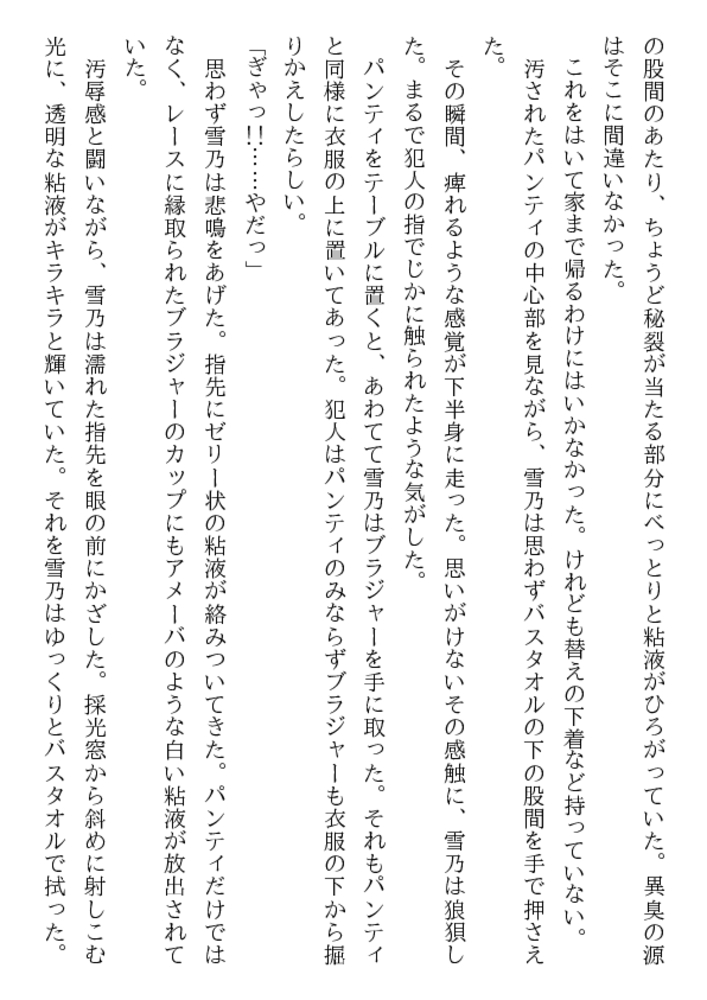 の股間のあたり、ちょうど秘裂が当たる部分にべっとりと粘液がひろがっていた。異臭の源
はそこに間違いなかった。
これをはいて家まで帰るわけにはいかなかった。けれども替えの下着など持っていない。
汚されたパンティの中心部を見ながら、雪乃は思わずバスタオルの下の股間を手で押さえ
た。
その瞬間、痺れるような感覚が下半身に走った。思いがけないその感触に、雪乃は狼狽し
た。まるで犯人の指でじかに触られたような気がした。
パンティをテーブルに置くと、あわてて雪乃はブラジャーを手に取った。それもパンティ
と同様に衣服の上に置いてあった。犯人はパンティのみならずブラジャーも衣服の下から掘
りかえしたらしい。
「ぎゃっ!!……やだっ」
思わず雪乃は悲鳴をあげた。指先にゼリー状の粘液が絡みついてきた。パンティだけでは
なく、レースに縁取られたブラジャーのカップにもアメーバのような白い粘液が放出されて
いた。
汚辱感と闘いながら、雪乃は濡れた指先を眼の前にかざした。採光窓から斜めに射しこむ
光に、透明な粘液がキラキラと輝いていた。それを雪乃はゆっくりとバスタオルで拭った。